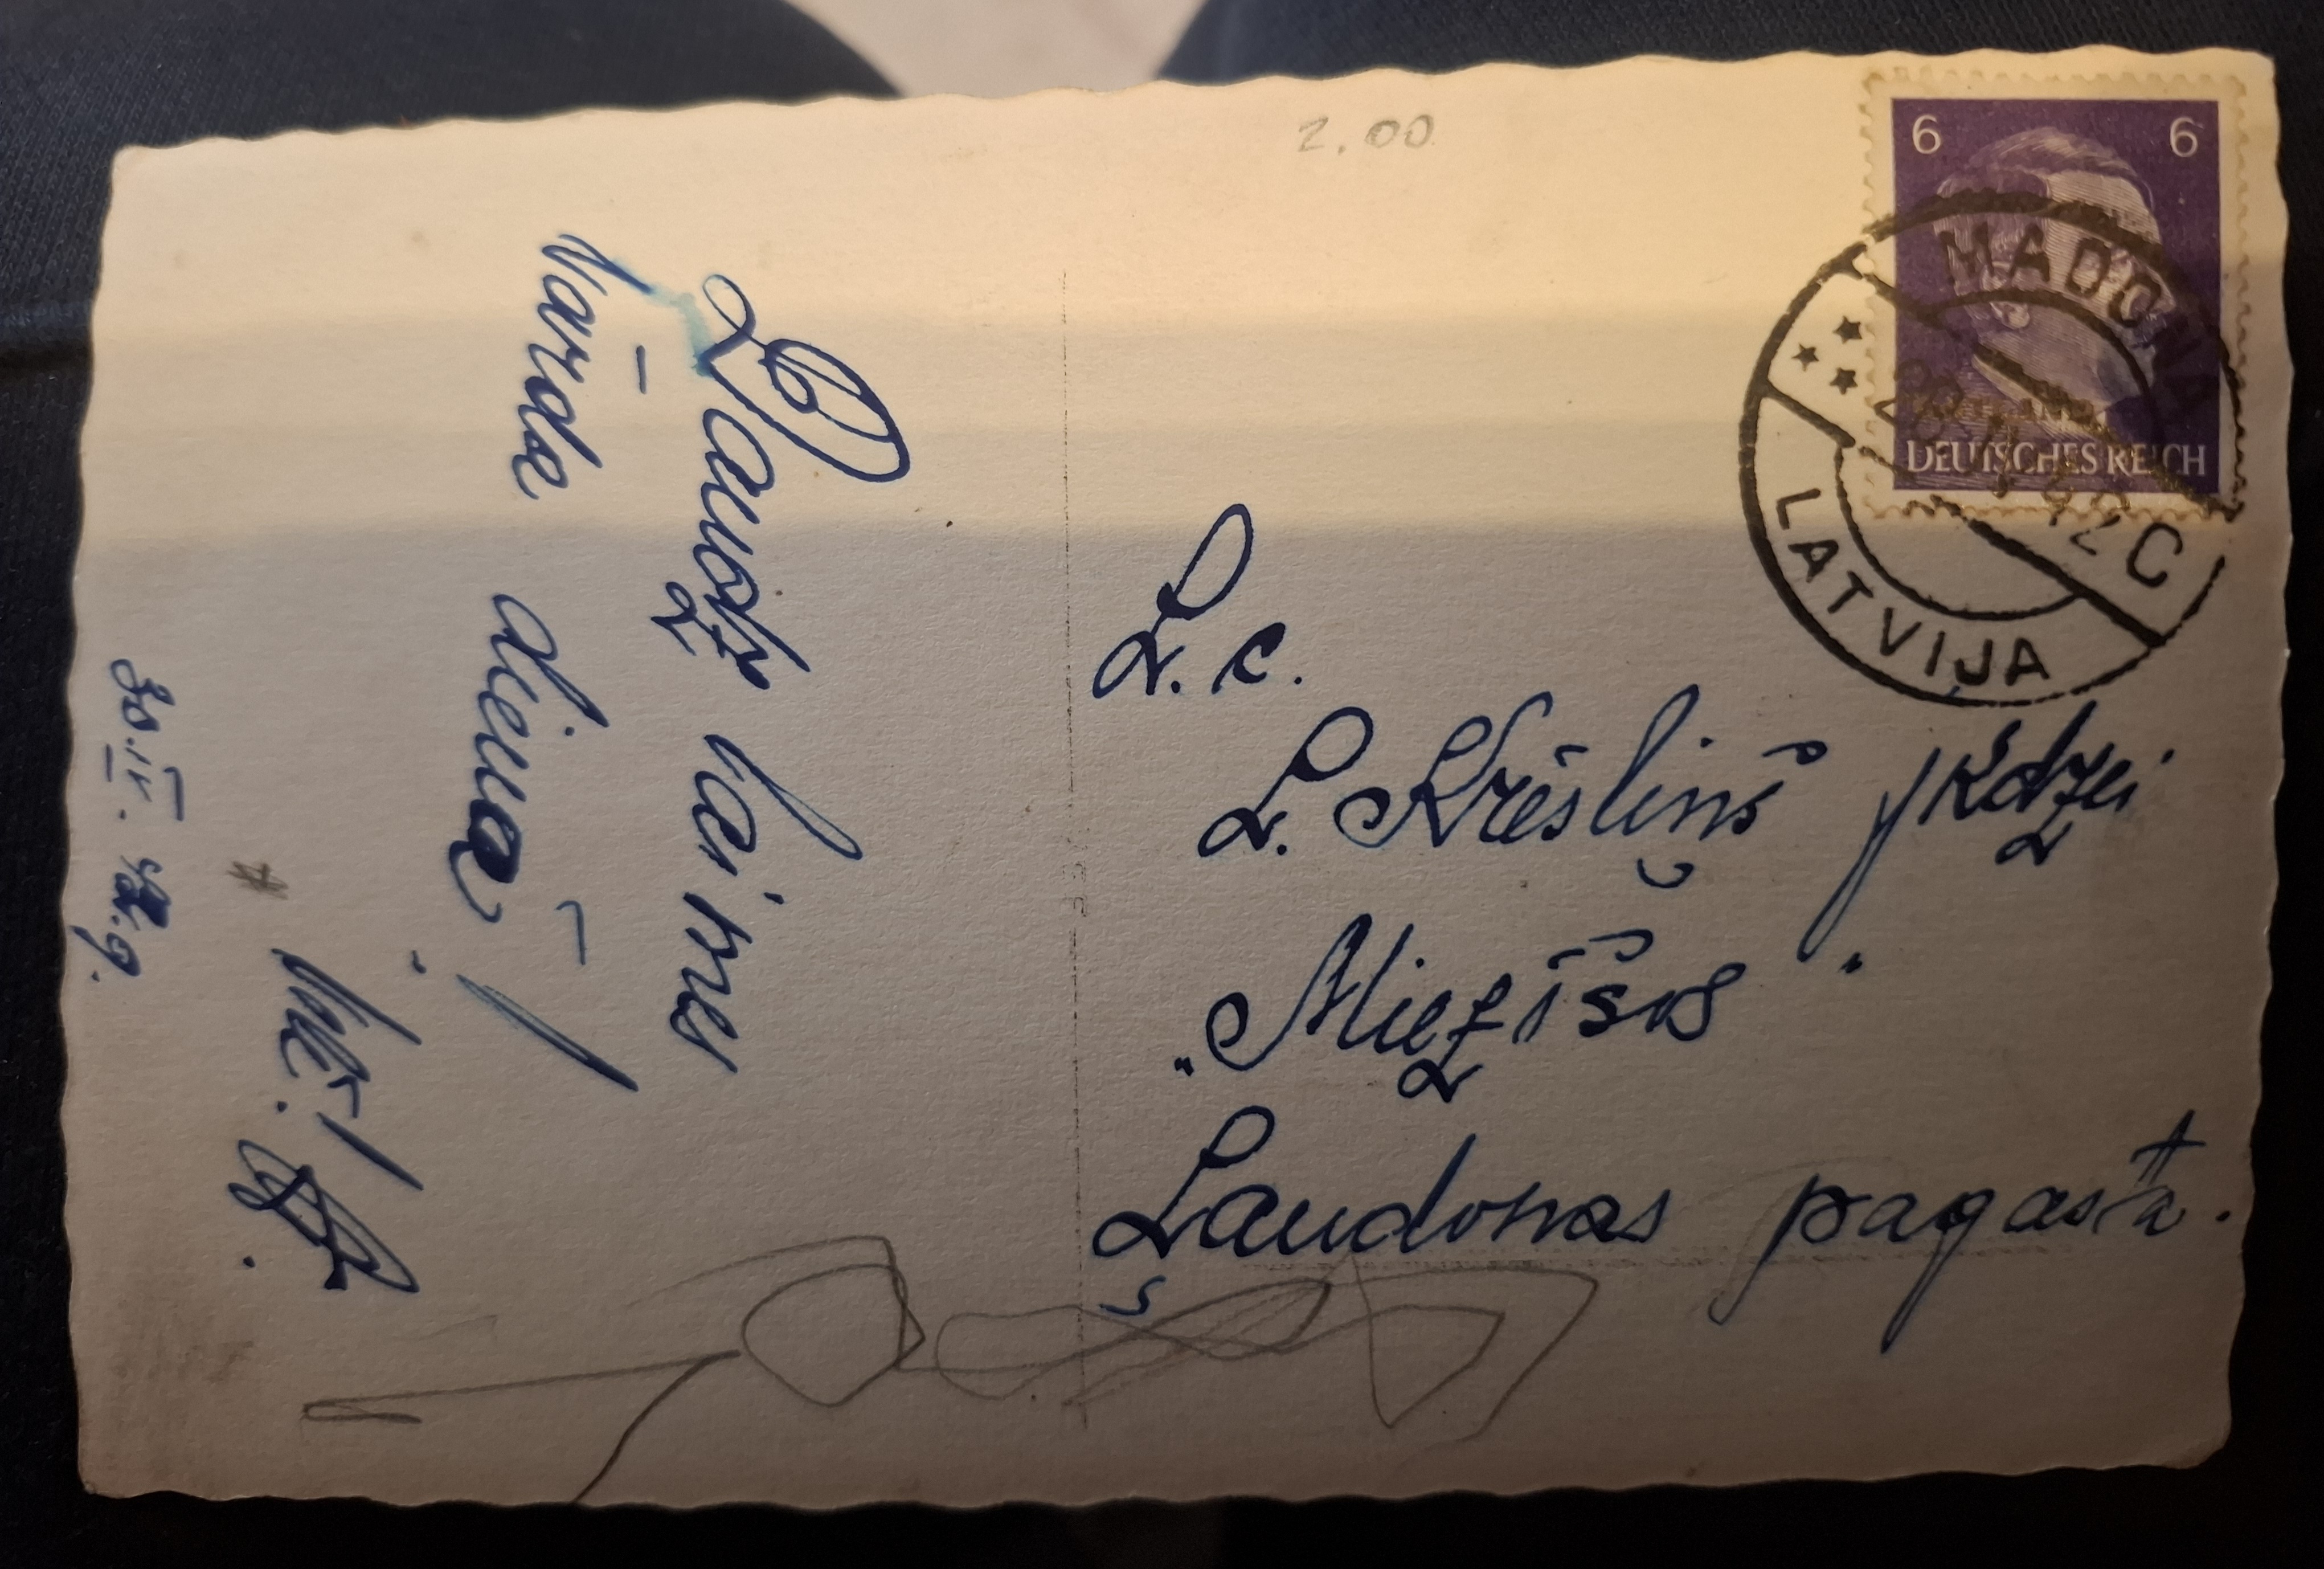 2.00
6 6
DEUTSCHES REICH
MADONA
C
LATVIJA
Daudz laimes
vārda dienā!
L. c.
L. Krēsliņš jkdzei
„Miezīšos"
Ļaudonas pagastā.